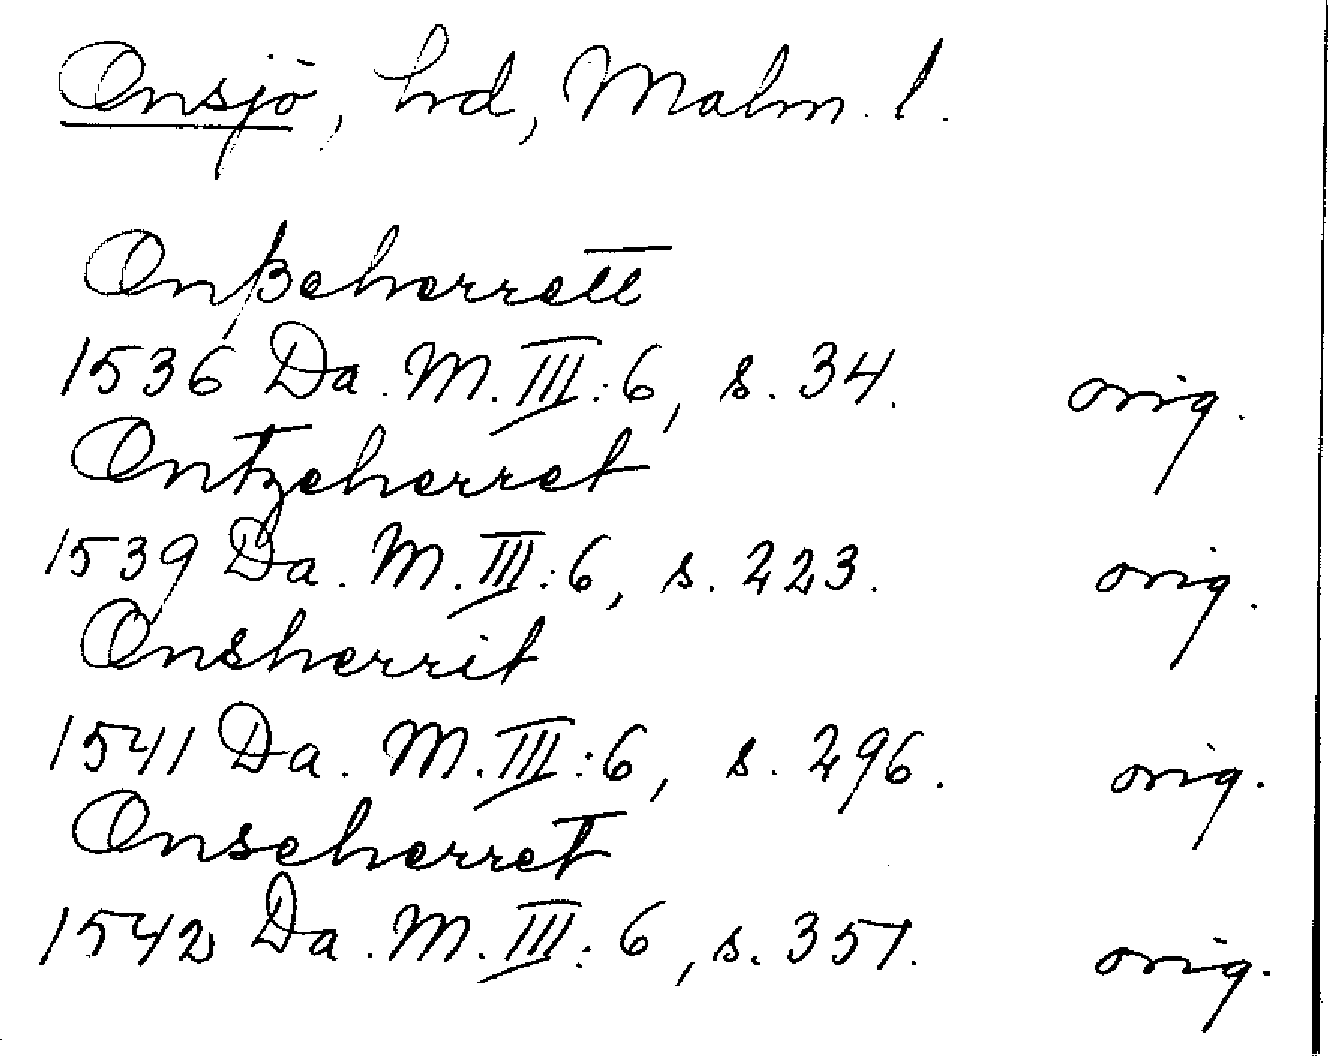 Onsjö, hd, Malm. l.
Onßeherrett
1536 Da. M. III:6, s. 34. orig.
Ontzeherret
1539 Da. M. III:6, s. 223. orig.
Onsherrit
1541 Da. M. III:6, s. 296. orig.
Onseherret
1542 Da. M. III:6, s. 351. orig.